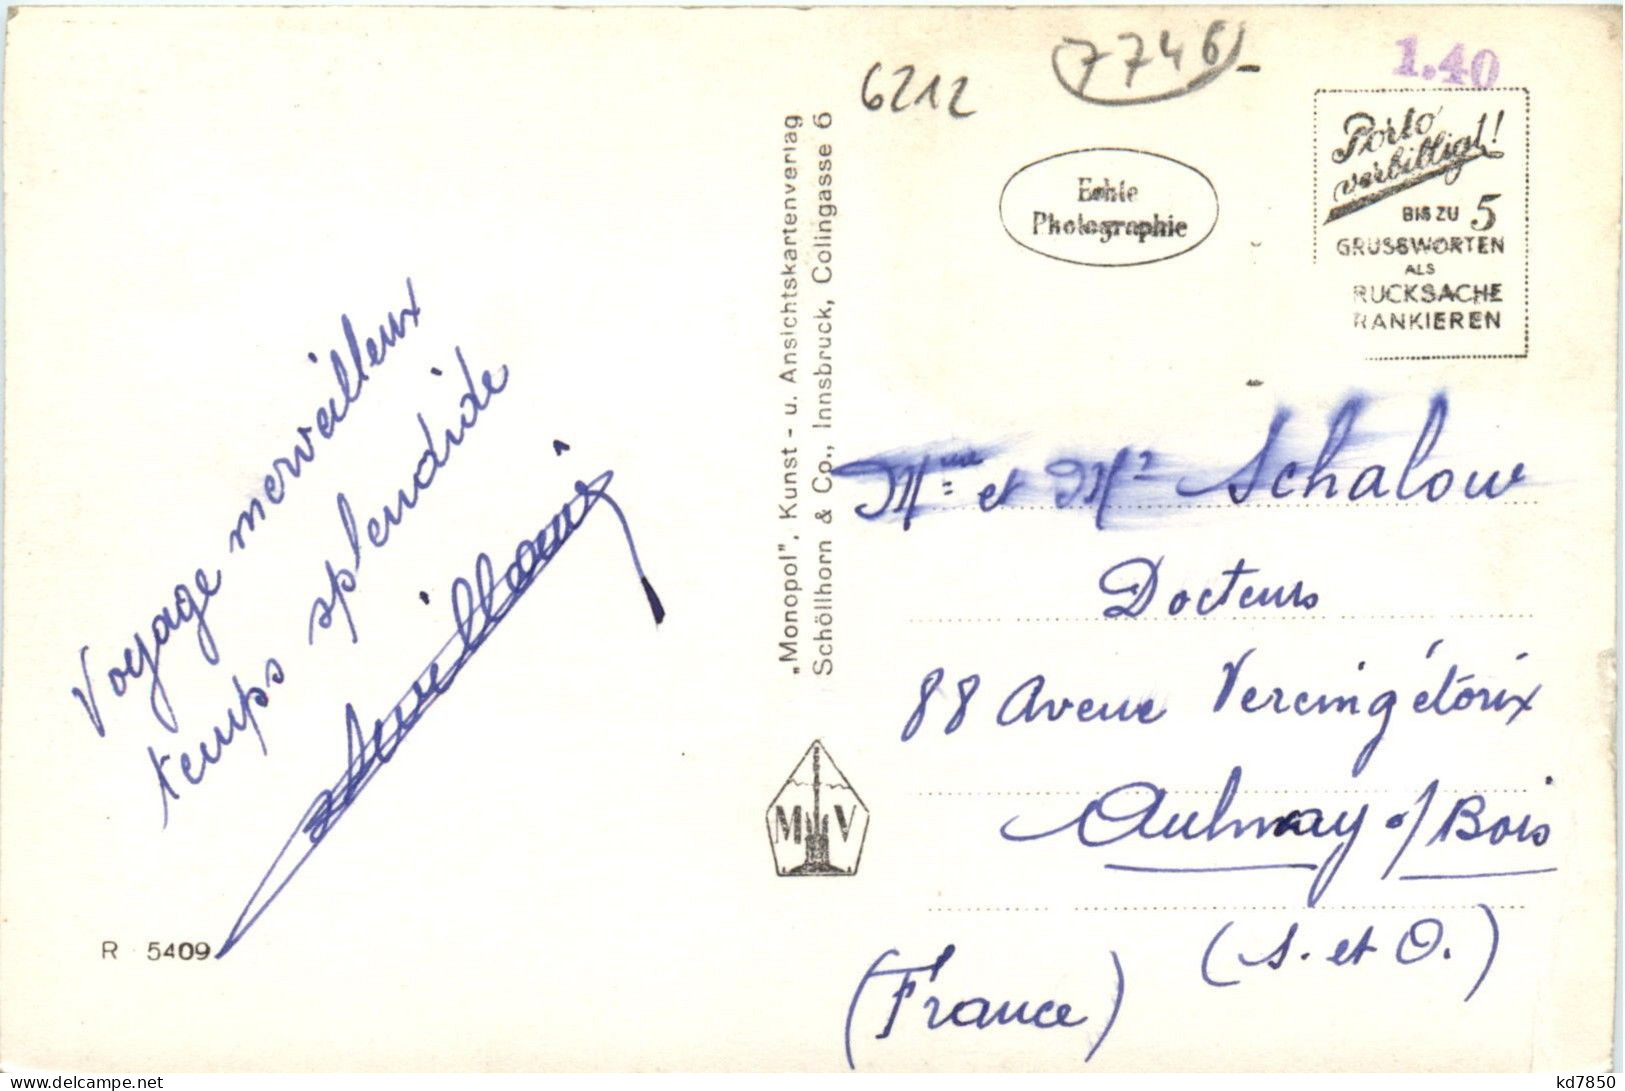 6212
7746
1.40
Porto
verbilligt!
BIS ZU 5
GRUSSWORTEN
ALS
RUCKSACHE
RANKIEREN
Echte
Photographie
„Monopol", Kunst - u. Ansichtskartenverlag
Schöllhorn & Co., Innsbruck, Colingasse 6
Voyage merveilleux
temps splendide
Mme et Mr Schalow
Docteurs
88 Avenue Vercingétorix
Aulnay s/Bois
(S. et O.)
(France)
M V
R 5409
kd7850